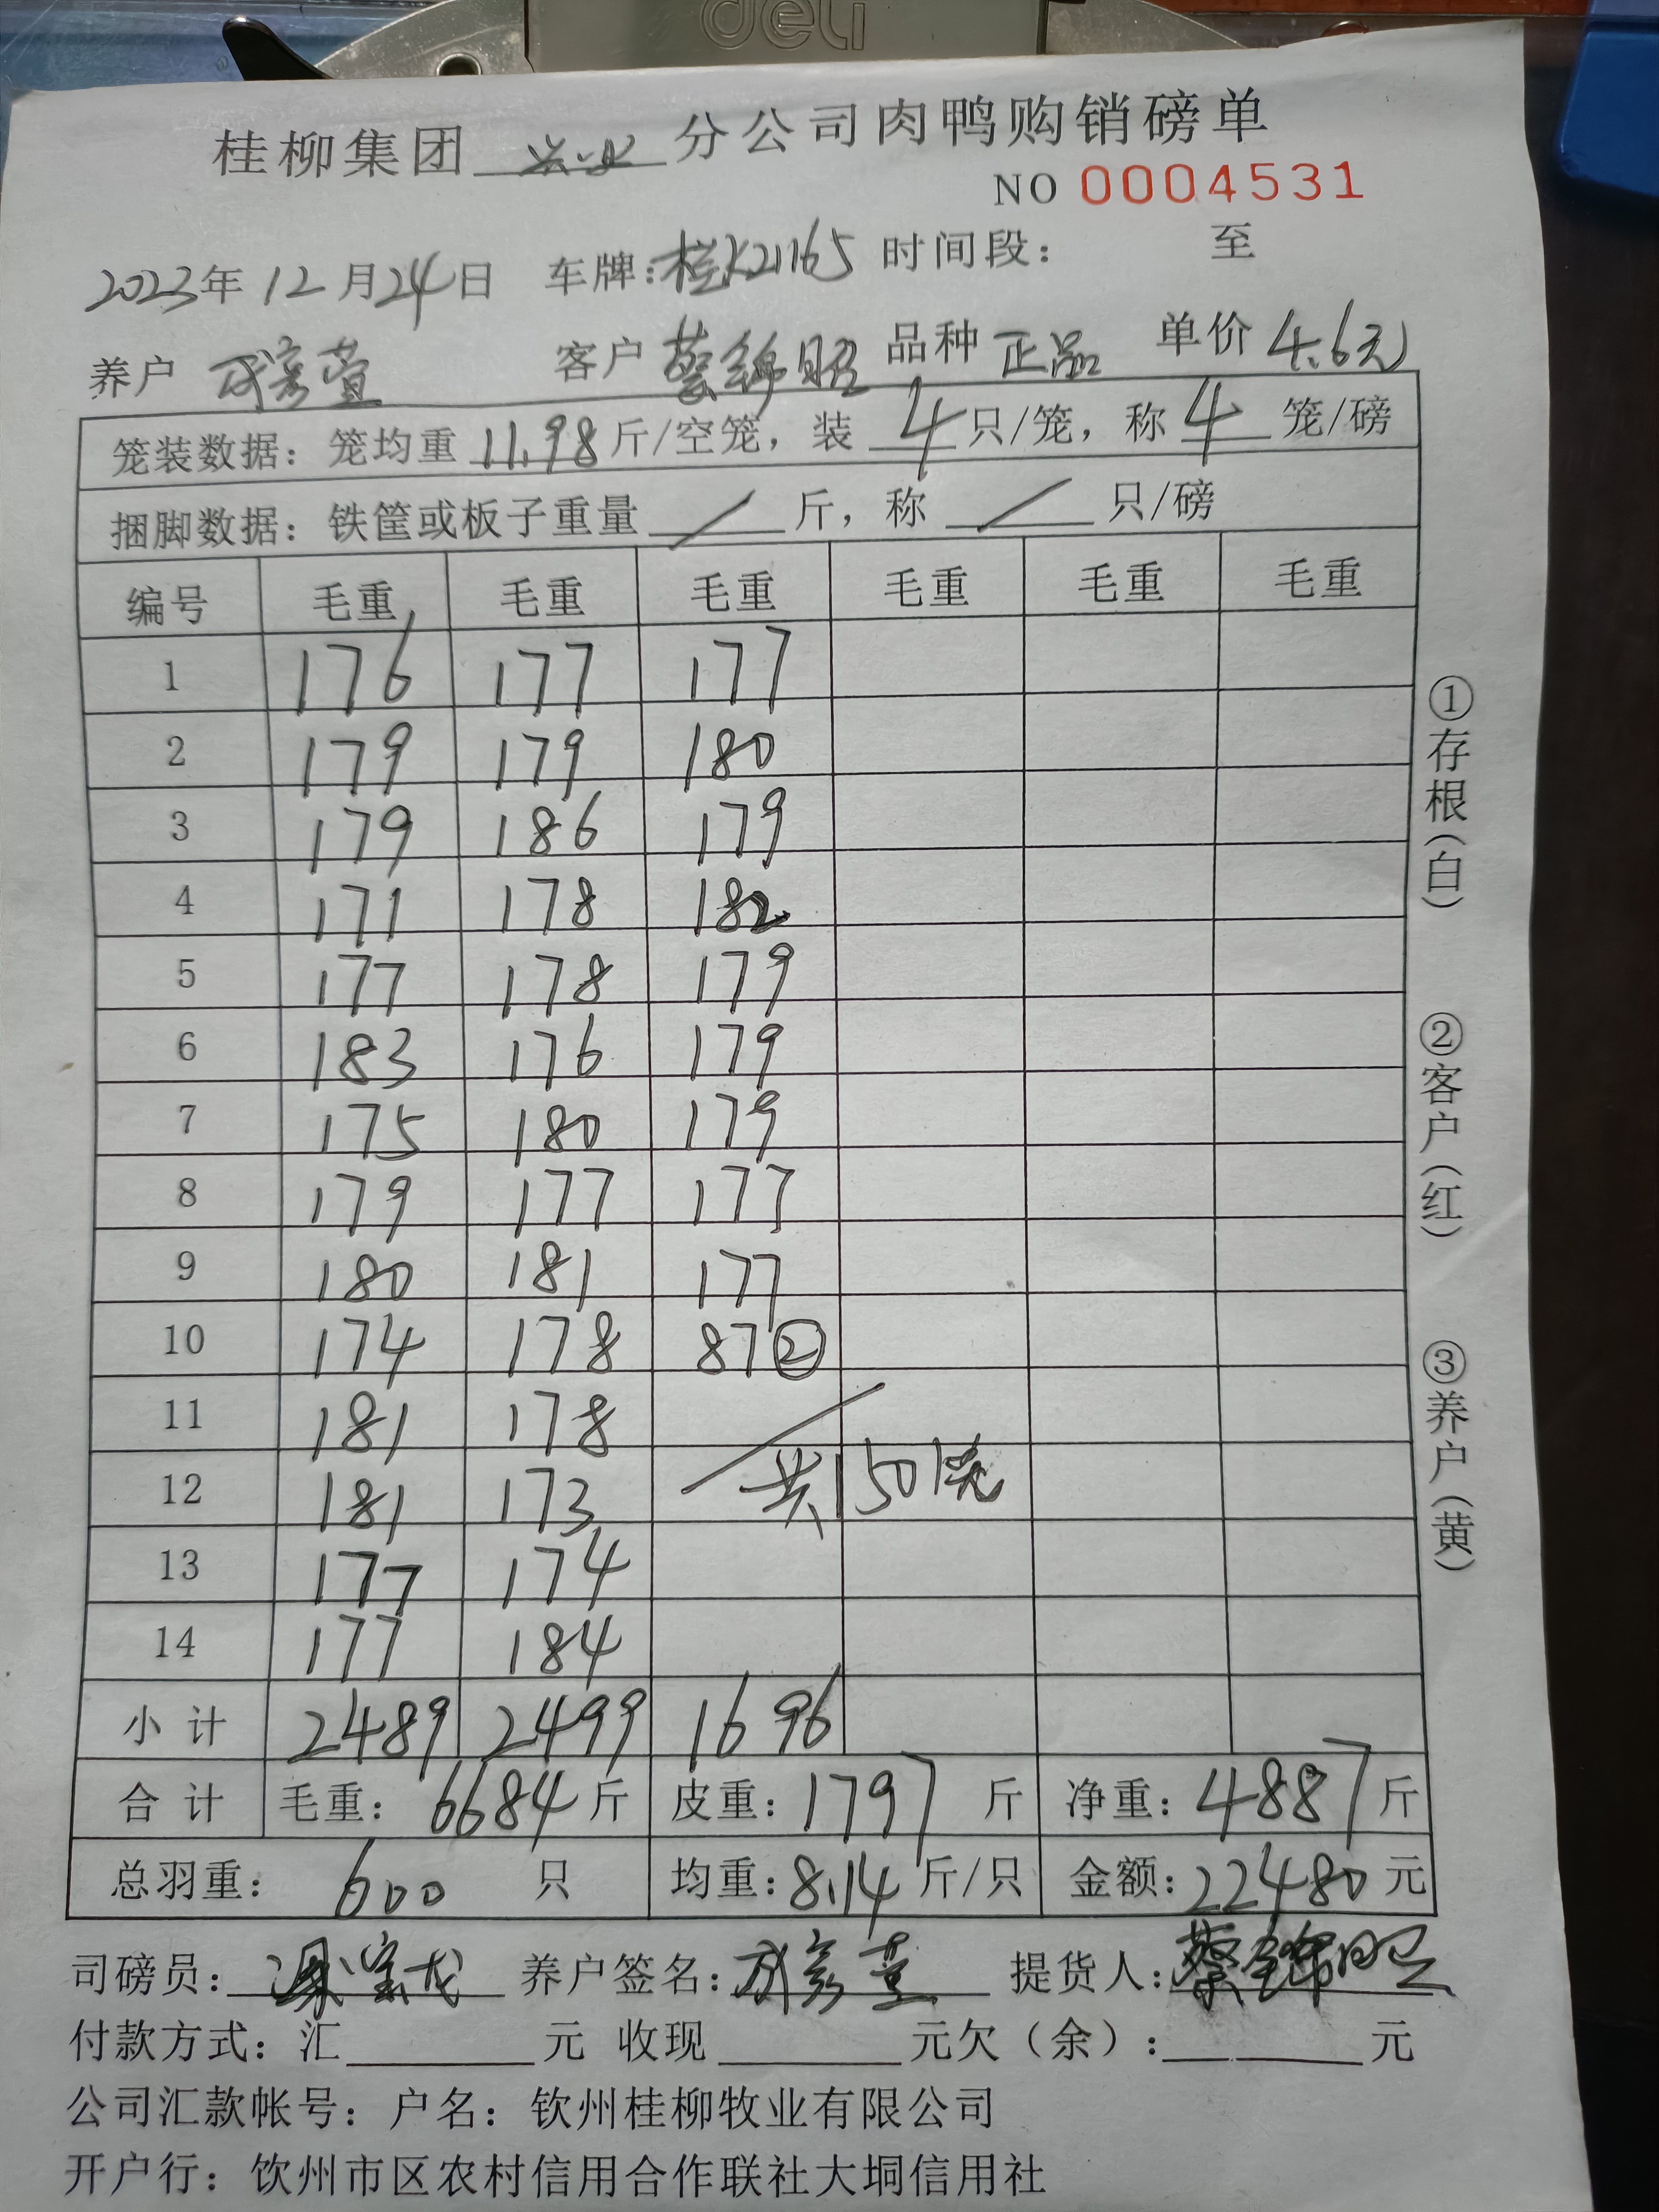 deli
桂柳集团 兴业 分公司肉鸭购销磅单
NO 0004531
2023年 12月24日 车牌:桂K21165 时间段: 至
养户 客户 蔡锦昭 品种 正品 单价 4.6元
笼装数据: 笼均重 11.98 斤/空笼, 装 4 只/笼, 称 4 笼/磅
捆脚数据: 铁筐或板子重量 / 斤, 称 / 只/磅
编号 毛重 毛重 毛重 毛重 毛重 毛重
1 176 177 177
2 179 179 180
3 179 186 179
4 171 178 182
5 177 178 179
6 183 176 179
7 175 180 179
8 179 177 177
9 180 181 177
10 174 178 87②
11 181 178
12 181 173 共150笼
13 177 174
14 177 184
小计 2489 2499 1696
合计 毛重: 6684 斤 皮重: 1797 斤 净重: 4887 斤
总羽重: 600 只 均重: 8.14 斤/只 金额: 22480 元
司磅员: 养户签名: 提货人: 蔡锦昭
付款方式: 汇 元 收现 元欠(余): 元
公司汇款帐号: 户名: 钦州桂柳牧业有限公司
开户行: 钦州市区农村信用合作联社大垌信用社
①存根(白)
②客户(红)
③养户(黄)